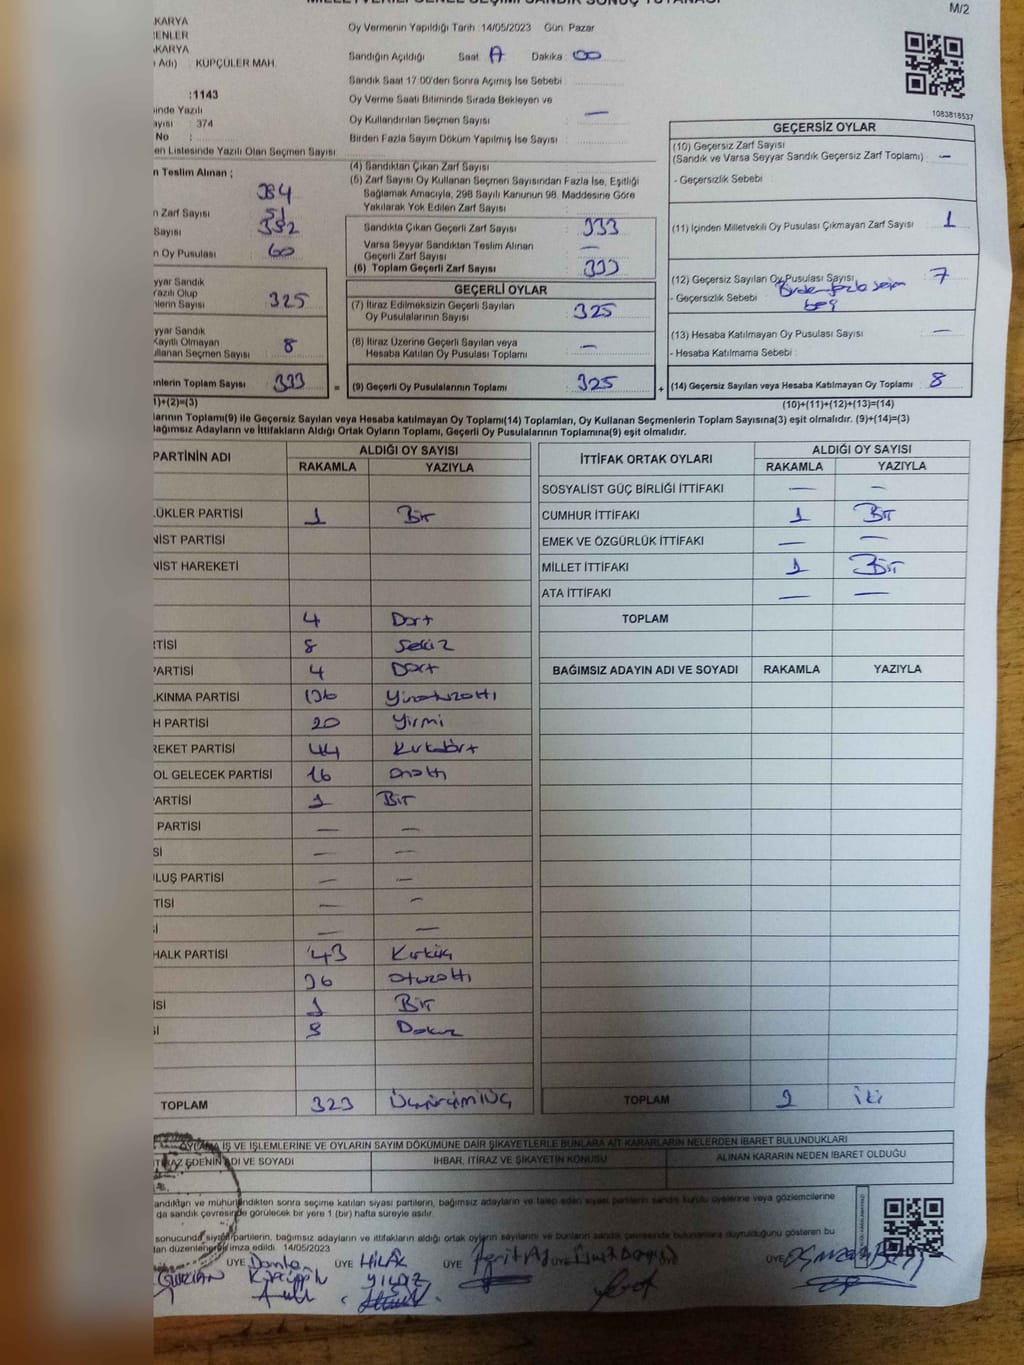 M/2
KARYA
ENLER
KARYA
Adı) : KÜPÇÜLER MAH.
:1143
inde Yazılı
ayısı : 374
No :
en Listesinde Yazılı Olan Seçmen Sayısı:
Oy Vermenin Yapıldığı Tarih :14/05/2023 Gün: Pazar
Sandığın Açıldığı Saat Dakika : 00
Sandık Saat 17:00'den Sonra Açılmış İse Sebebi :
Oy Verme Saati Bitiminde Sırada Bekleyen ve
Oy Kullandırılan Seçmen Sayısı : —
Birden Fazla Sayım Döküm Yapılmış İse Sayısı :
1083818537
n Teslim Alınan ;
384
n Zarf Sayısı 51
Sayısı 332
n Oy Pusulası 60
yyar Sandık
Yazılı Olup
nlerin Sayısı : 325
yyar Sandık
Kayıtlı Olmayan
ullanan Seçmen Sayısı : 8
nlerin Toplam Sayısı : 333
1)+(2)=(3)
(4) Sandıktan Çıkan Zarf Sayısı :
(5) Zarf Sayısı Oy Kullanan Seçmen Sayısından Fazla İse, Eşitliği
Sağlamak Amacıyla, 298 Sayılı Kanunun 98. Maddesine Göre
Yakılarak Yok Edilen Zarf Sayısı :
Sandıkta Çıkan Geçerli Zarf Sayısı : 333
Varsa Seyyar Sandıktan Teslim Alınan
Geçerli Zarf Sayısı : —
(6) Toplam Geçerli Zarf Sayısı : 333
GEÇERLİ OYLAR
(7) İtiraz Edilmeksizin Geçerli Sayılan
Oy Pusulalarının Sayısı : 325
(8) İtiraz Üzerine Geçerli Sayılan veya
Hesaba Katılan Oy Pusulası Toplamı : —
= (9) Geçerli Oy Pusulalarının Toplamı : 325 +
GEÇERSİZ OYLAR
(10) Geçersiz Zarf Sayısı
(Sandık ve Varsa Seyyar Sandık Geçersiz Zarf Toplamı) : —
- Geçersizlik Sebebi :
(11) İçinden Milletvekili Oy Pusulası Çıkmayan Zarf Sayısı : 1
(12) Geçersiz Sayılan Oy Pusulası Sayısı : 7
- Geçersizlik Sebebi : Birden fazla seçim
boş
(13) Hesaba Katılmayan Oy Pusulası Sayısı : —
- Hesaba Katılmama Sebebi :
(14) Geçersiz Sayılan veya Hesaba Katılmayan Oy Toplamı : 8
(10)+(11)+(12)+(13)=(14)
larının Toplamı(9) ile Geçersiz Sayılan veya Hesaba katılmayan Oy Toplamı(14) Toplamları, Oy Kullanan Seçmenlerin Toplam Sayısına(3) eşit olmalıdır. (9)+(14)=(3)
ağımsız Adayların ve İttifakların Aldığı Ortak Oyların Toplamı, Geçerli Oy Pusulalarının Toplamına(9) eşit olmalıdır.
PARTİNİN ADI ALDIĞI OY SAYISI
RAKAMLA YAZIYLA
LÜKLER PARTİSİ 1 Bir
NİST PARTİSİ
NİST HAREKETİ
4 Dört
RTİSİ 8 sekiz
PARTİSİ 4 Dört
LKINMA PARTİSİ 136 Yüzotuzaltı
H PARTİSİ 20 Yirmi
REKET PARTİSİ 44 Kırkdört
OL GELECEK PARTİSİ 16 onaltı
ARTİSİ 1 Bir
PARTİSİ — —
Sİ — —
LUŞ PARTİSİ — —
TİSİ — —
İ — —
HALK PARTİSİ 43 Kırküç
36 otuzaltı
İSİ 1 Bir
İ 9 Dokuz
TOPLAM 323 Üçyüzyirmiüç
İTTİFAK ORTAK OYLARI ALDIĞI OY SAYISI
RAKAMLA YAZIYLA
SOSYALİST GÜÇ BİRLİĞİ İTTİFAKI — —
CUMHUR İTTİFAKI 1 Bir
EMEK VE ÖZGÜRLÜK İTTİFAKI — —
MİLLET İTTİFAKI 1 Bir
ATA İTTİFAKI — —
TOPLAM
BAĞIMSIZ ADAYIN ADI VE SOYADI RAKAMLA YAZIYLA
TOPLAM 2 iki
OYLAMA İŞ VE İŞLEMLERİNE VE OYLARIN SAYIM DÖKÜMÜNE DAİR ŞİKAYETLERLE BUNLARA AİT KARARLARIN NELERDEN İBARET BULUNDUKLARI
İTİRAZ EDENİN ADI VE SOYADI İHBAR, İTİRAZ VE ŞİKAYETİN KONUSU ALINAN KARARIN NEDEN İBARET OLDUĞU
andıktan ve mühürlendikten sonra seçime katılan siyasi partilerin, bağımsız adayların ve talep eden siyasi partilerin sandık kurulu üyelerine veya gözlemcilerine
da sandık çevresinde görülecek bir yere 1 (bir) hafta süreyle asılır.
sonucunda siyasi partilerin, bağımsız adayların ve ittifakların aldığı ortak oyların sayılarını ve bunların sandık çevresinde bulunanlara duyurulduğunu gösteren bu
dan düzenlenerek imza edildi. 14/05/2023
ÜYE ÜYE HİLAL ÜYE ÜYE ÜYE
GÜRCAN YILMAZ